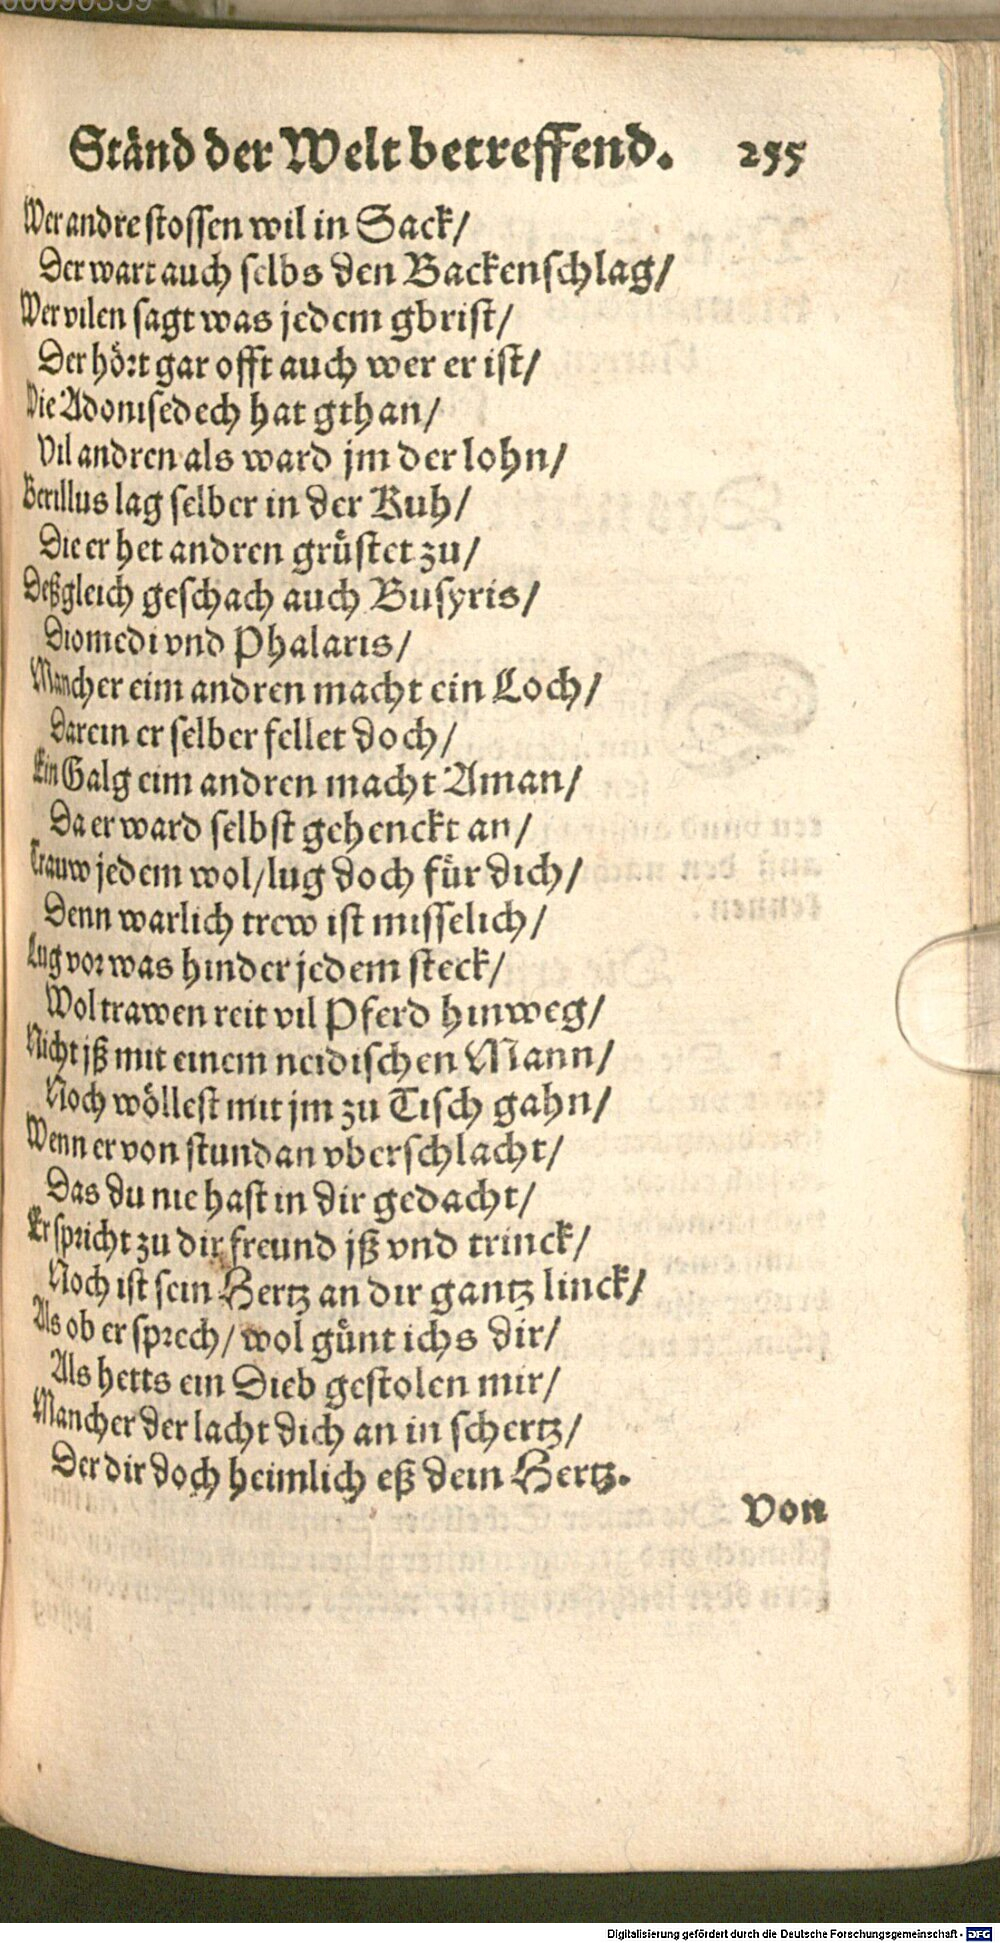 Ständ der Welt betreffend. 255
Wer andre stossen wil in Sack/
Der wart auch selbs den Backenschlag/
Wer vilen sagt was jedem gbrist/
Der hört gar offt auch wer er ist/
Wie Adonisedech hat gthan/
Vil andren als ward jm der lohn/
Berillus lag selber in der Kuh/
Die er het andren grüstet zu/
Deßgleich geschach auch Busyris/
Diomedi vnd Phalaris/
Mancher eim andren macht ein Loch/
Darein er selber fellet doch/
Ein Galg eim andren macht Aman/
Da er ward selbst gehenckt an/
Trauw jedem wol/lug doch für dich/
Denn warlich trew ist misselich/
Lug vor was hinder jedem steck/
Wol trawen reit vil Pferd hinweg/
Nicht jß mit einem neidischen Mann/
Noch wöllest mit jm zu Tisch gahn/
Wenn er von stund an vberschlacht/
Das du nie hast in dir gedacht/
Er spricht zu dir freund jß vnd trinck/
Noch ist sein Hertz an dir gantz linck/
Als ob er sprech/ wol günt ichs dir/
Als hetts ein Dieb gestolen mir/
Mancher der lacht dich an in schertz/
Der dir doch heimlich eß dein Hertz.
Von
Digitalisierung gefördert durch die Deutsche Forschungsgemeinschaft - DFG